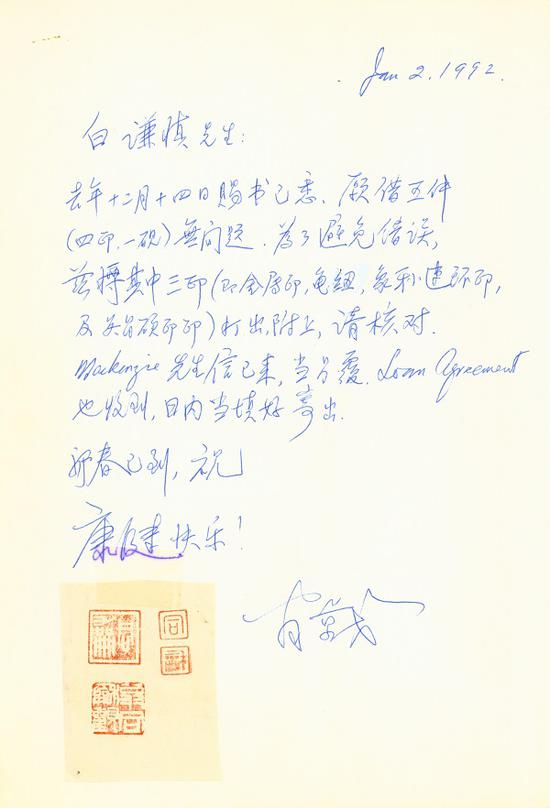 Jan 2, 1992.
白谦慎先生:
去年十二月十四日赐书已悉、愿借五件
(四印,一砚)無问题.为了避免错误,
兹其中三印(即金属印,龟纽,象牙小連环印,
及吴昌硕印)打出附上,请核对.
Mackenzie 先生信已来,当另覆. Loan Agreement
也收到,日内当填好寄出.
新春已到,祝
康健快乐!
翁萬戈